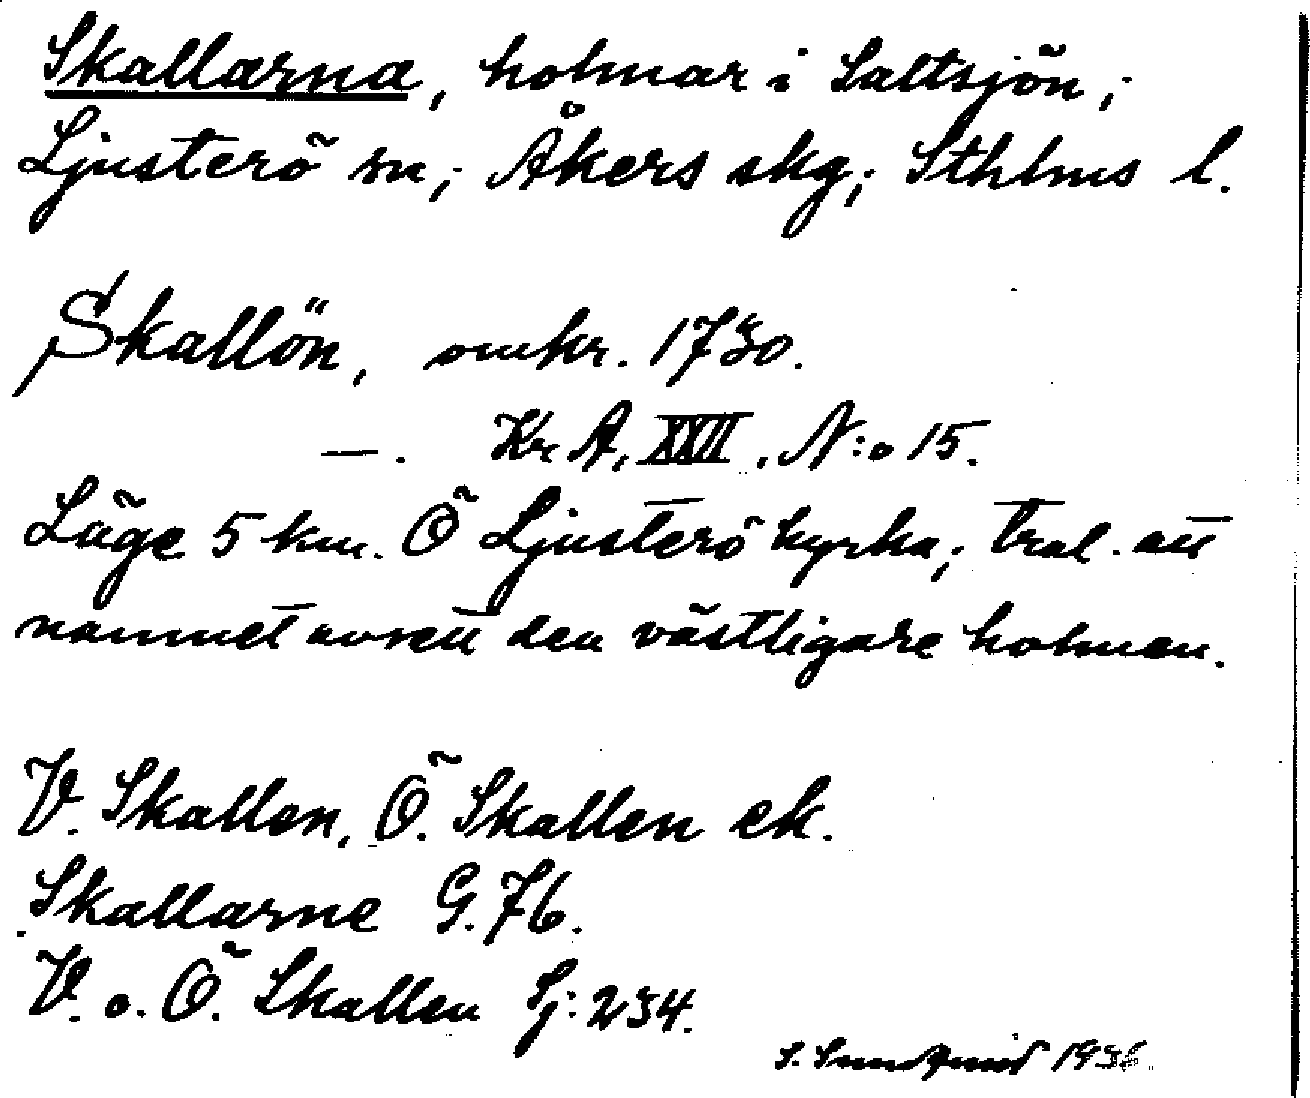 Skallarna, holmar i Saltsjön;
Ljusterö sn; Åkers skg; Sthlms l.
Skallön, omkr. 1730.
—. Kr A, XXII, N:o 15.
Läge 5 km. Ö Ljusterö kyrka; trol. att
namnet avsett den västligare holmen.
V. Skallen, Ö. Skallen ek.
Skallarne G. 76.
V. o. Ö. Skallen Sj: 234.
S. Sundqvist 1936